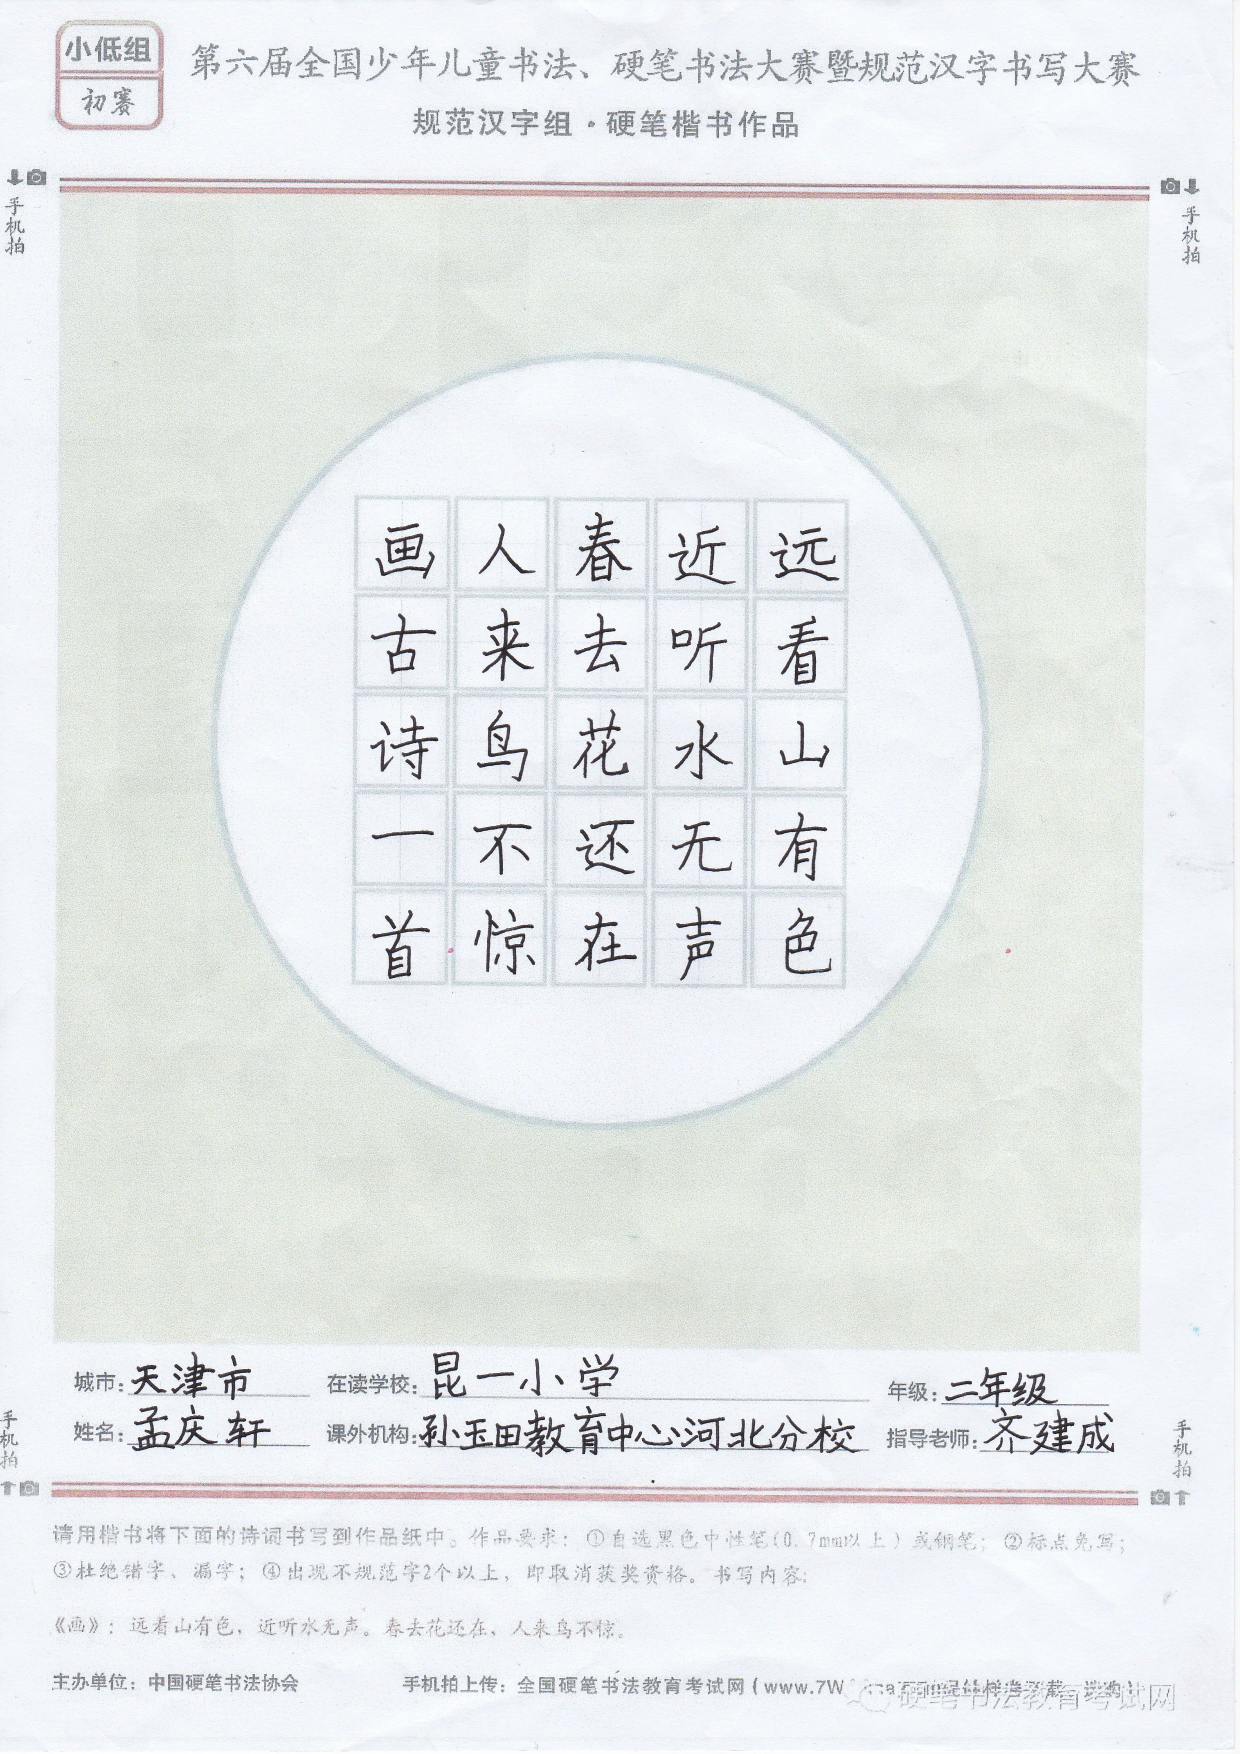 小低组
初赛
第六届全国少年儿童书法、硬笔书法大赛暨规范汉字书写大赛
规范汉字组·硬笔楷书作品
手机拍
手机拍
远看山有色
近听水无声
春去花还在
人来鸟不惊
画古诗一首
城市：天津市 在读学校：昆一小学 年级：二年级
姓名：孟庆轩 课外机构：孙玉田教育中心河北分校 指导老师：齐建成
手机拍
手机拍
请用楷书将下面的诗词书写到作品纸中。作品要求：①自选黑色中性笔(0.7mm以上)或钢笔；②标点免写；
③杜绝错字、漏字；④出现不规范字2个以上，即取消获奖资格。书写内容：
《画》：远看山有色，近听水无声。春去花还在，人来鸟不惊。
主办单位：中国硬笔书法协会 手机拍上传：全国硬笔书法教育考试网(www.7W
硬笔书法教育考试网